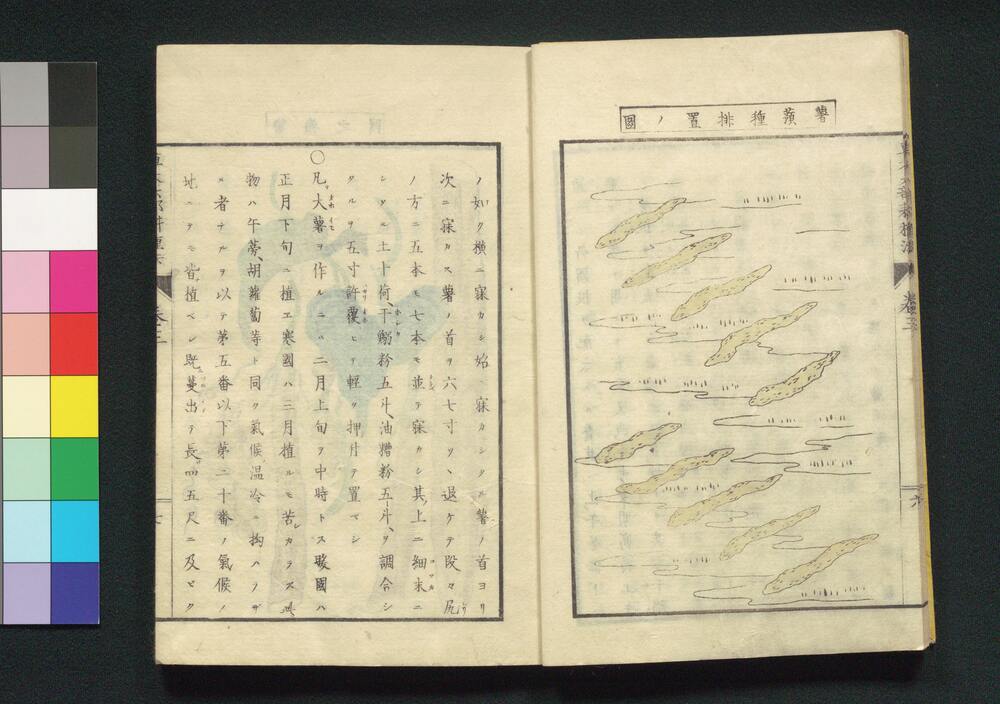 薯蕷種排置ノ圖
ノ如ク横ニ寐カシ始ニ寐カシタル薯ノ首ヨリ
次ニ寐カス薯ノ首ヲ六七寸ツヽ退ケテ段々尻
ノ方ニ五本モ七本モ並テ寐カシ其上ニ細末ニ
シタル土十荷、干鰯粉五斗、油糟粉五斗、ヲ調合シ
タルヲ五寸許覆ヒテ輕ク押片テ置ベシ
〇凡大薯ヲ作ルニハ二月上旬ヲ中時トス暖國ハ
正月下旬ニ植エ寒國ハ三月植ルモ苦カラス此
物ハ午蒡、胡蘿蔔等ト同ク氣候温冷ニ拘ハラザ
ル者ナルヲ以テ第五番以下第二十番ノ氣候ノ
地ニテモ皆植ベシ既蔓出テ長四五尺ニ及ビタ
卷三
六